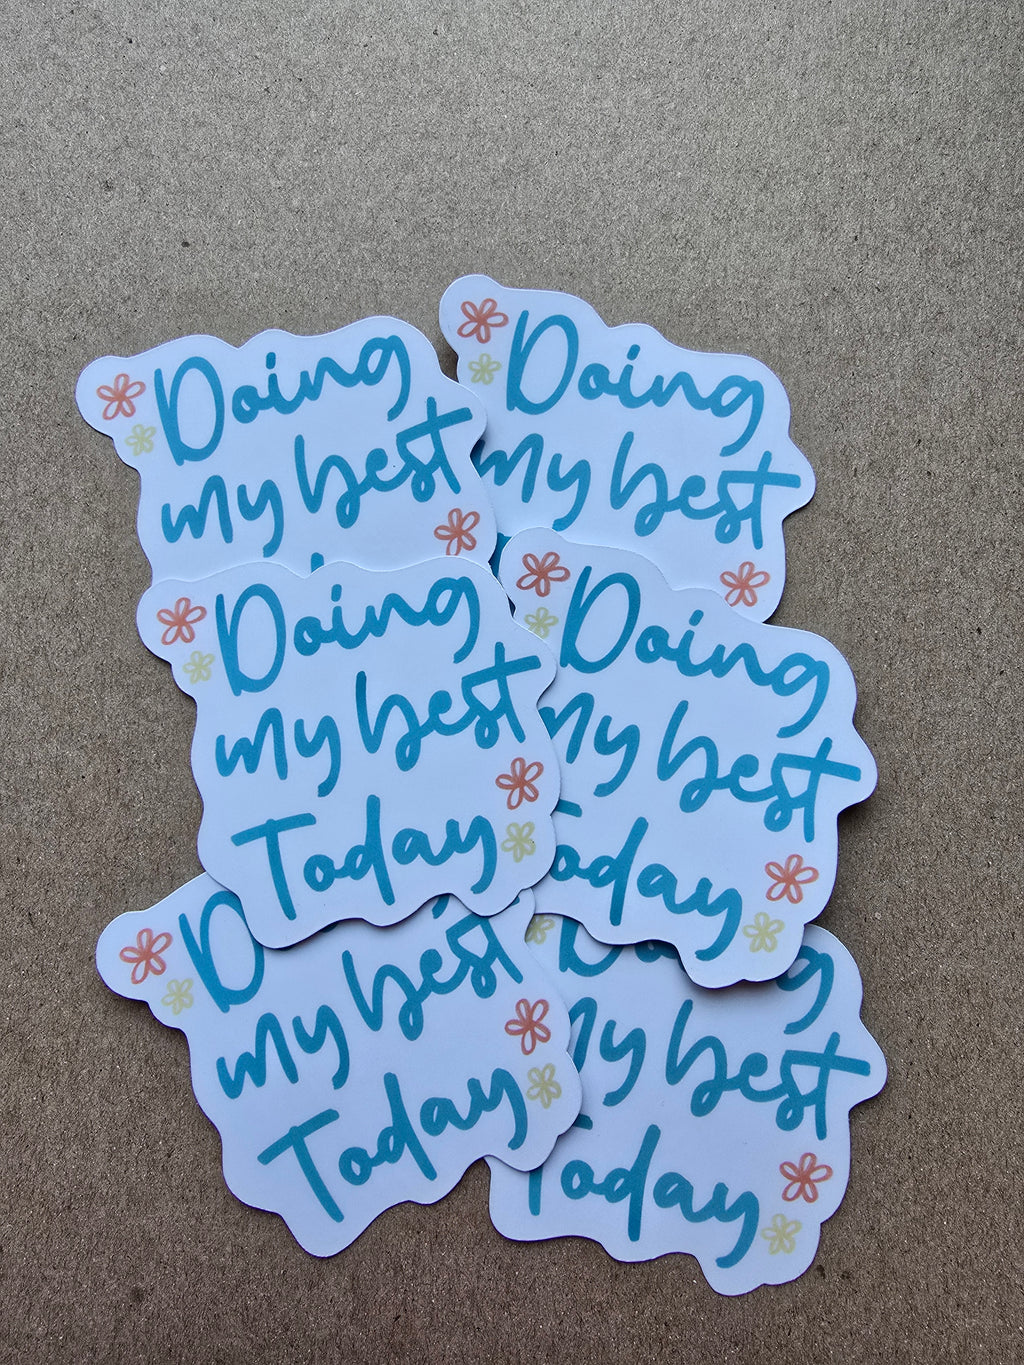 Doing
my best
Doing
my best
Doing
my best
Today
Doing
my best
Today
D
my best
Today
my best
Today